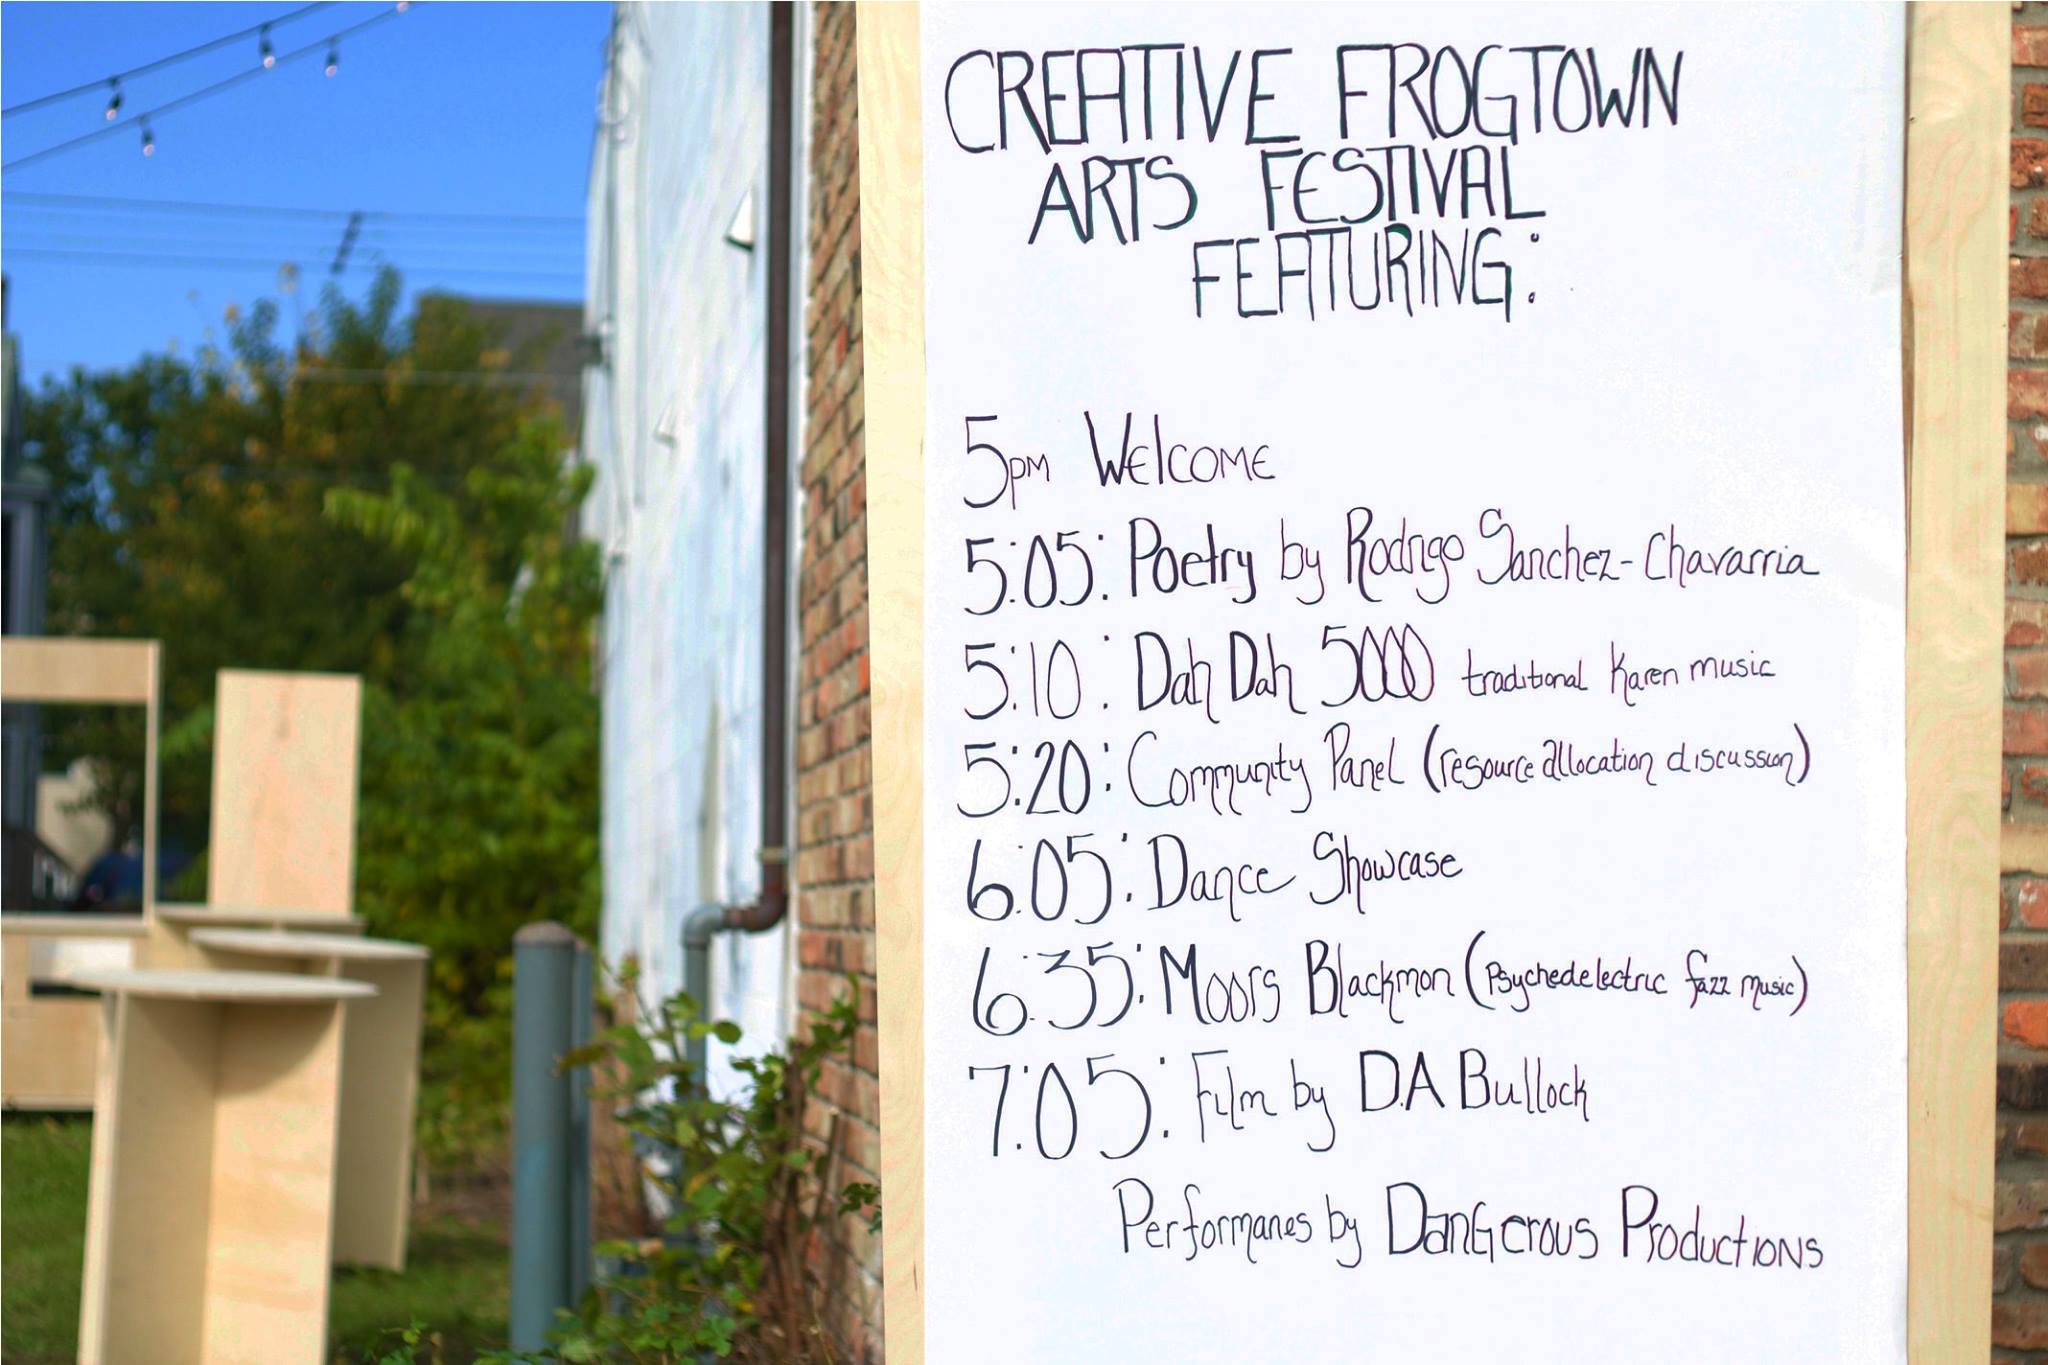 CREATIVE FROGTOWN
ARTS FESTIVAL
FEATURING:
5pm Welcome
5:05: Poetry by Rodrigo Sanchez-Chavarria
5:10: Dah Dah 5000 traditional Karen music
5:20: Community Panel (resource allocation discussion)
6:05: Dance Showcase
6:35: Moors Blackmon (Psychedelectric fazz music)
7:05: Film by D.A Bullock
Performanes by Dangerous Productions